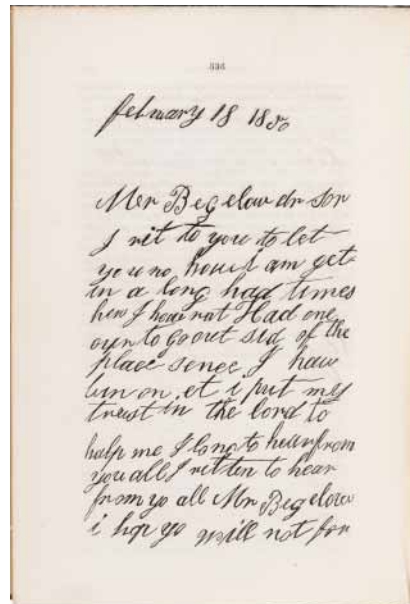 336
february 18 1850
Mer Begelow dr Sor
I rit to you to let
you no how I am get
in a long had times
her I have not Had one
our to go out sid of the
place sence I hav
bin on et i put my
trust in the lord to
halp me I long to hear from
you all I ritten to hear
from yo all Mr Begelow
i hop yo will not for